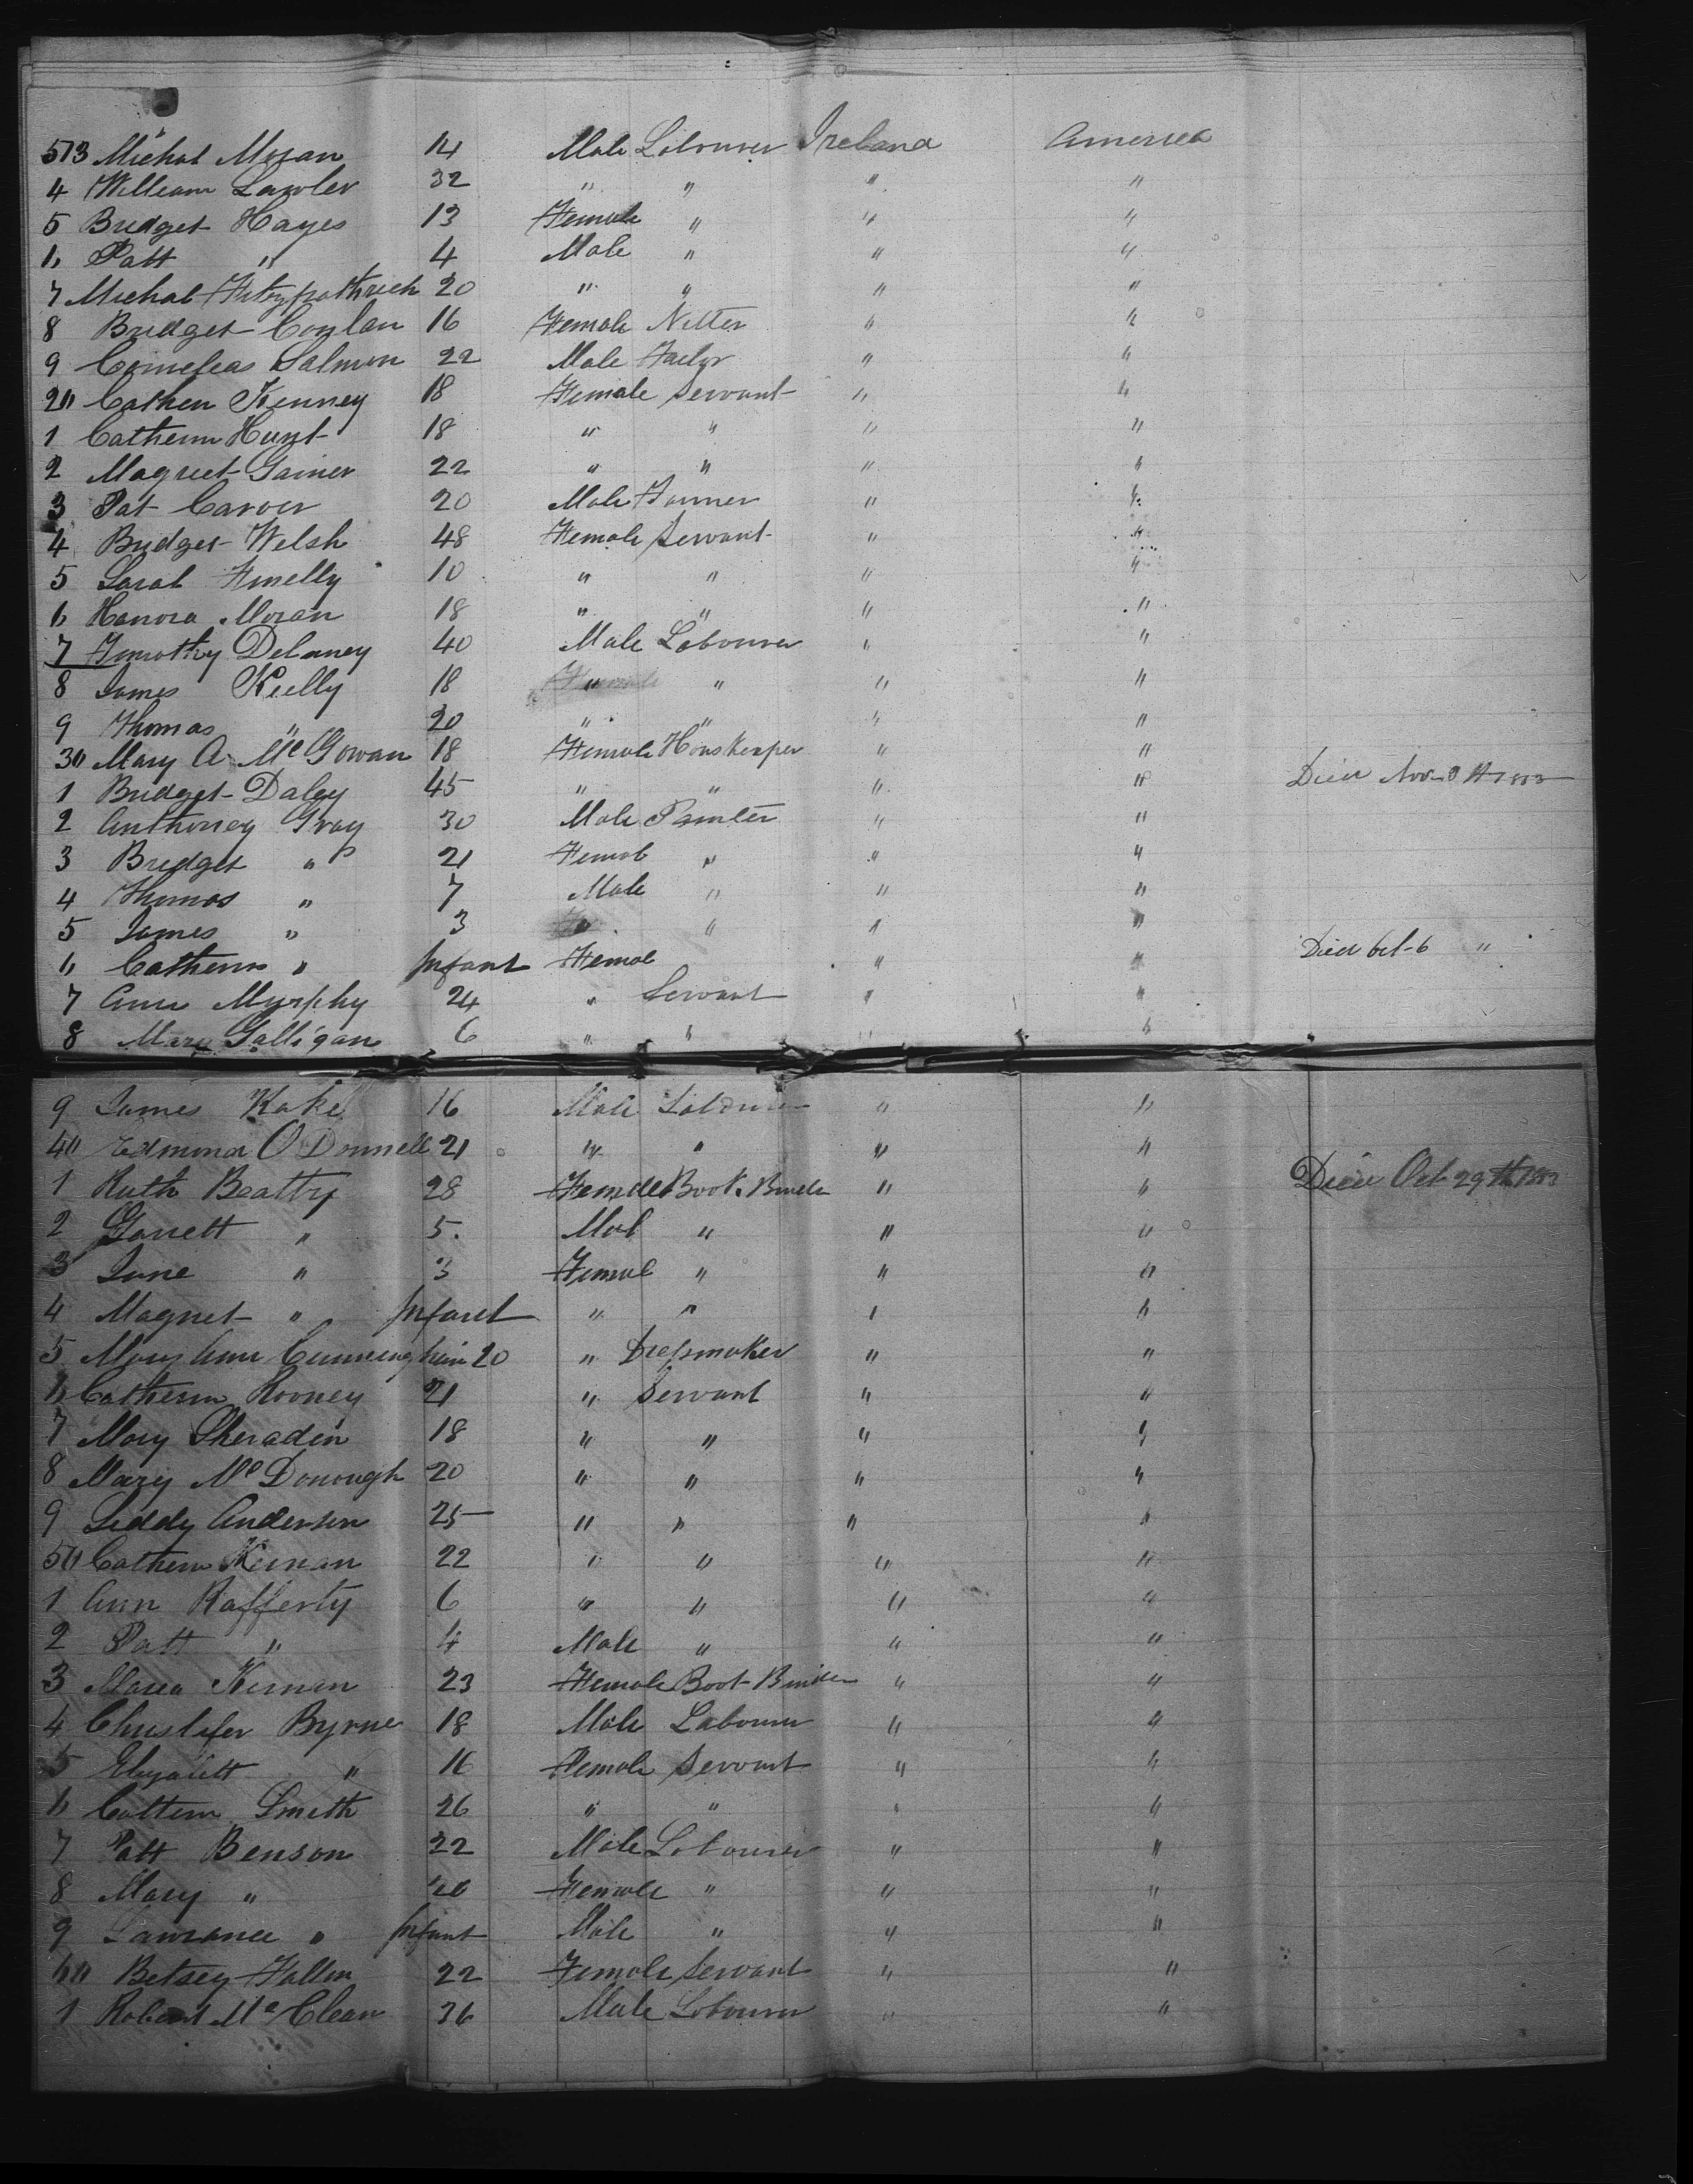 513 Michal Moran 14 Male Labourer Ireland America
4 William Lawler 32 " " " "
5 Bridget Hayes 13 Female " " "
6 Patt " 4 Male " " "
7 Michal Fitzpathrick 20 " " " "
8 Bridget Conlan 16 Female Nitter " "
9 Corneleas Salmon 22 Male Taelor " "
20 Cathen Kenney 18 Female Servant " "
1 Catherin Hunt 18 " " " "
2 Magreet Gainer 22 " " " "
3 Pat Carver 20 Male Farmer " "
4 Bridget Welsh 48 Female Servant " "
5 Sarah 10 " " " "
6 Hanora Moran 18 " " " "
7 Timothy Delaney 40 Male Labourer " "
8 James Kielly 18 " " " "
9 Thomas " 20 " " " "
30 Mary A. McGowan 18 Female Houskeeper " "
1 Bridget Daley 45 " " " " Died Nov
2 Anthoney Gray 30 Male Painter " "
3 Bridget " 21 Femal " " "
4 Thomas " 7 Male " " "
5 James " 3 " " "
6 Catherin " Infant Femal " " Died Oct 6 "
7 Ann Murphy 24 " Servant " "
8 Mary Galligan 6 " " " "
9 James Kake 16 Male Labourer " "
40 Edmond O Donnell 21 " " " "
1 Ruth Beatty 28 Female Boot Binder " " Died Oct 29th
2 Garrett " 5 Mal " " "
3 Jane " 3 Femal " " "
4 Magret " Infant " " " "
5 Mary Ann Cunningham 20 " Dressmaker " "
6 Catherin Rooney 21 " Servant " "
7 Mary Sheraden 18 " " " "
8 Mary McDonough 20 " " " "
9 Liddy Anderson 25 " " " "
50 Cathern Kernan 22 " " " "
1 Ann Rafferty 6 " " " "
2 Patt " 4 Male " " "
3 Maria Kernan 23 Female Boot Binder " "
4 Christifer Byrne 18 Male Labourer " "
5 Elizabett " 16 Female Servant " "
6 Cattern Smith 26 " " " "
7 Patt Benson 22 Male Labourer " "
8 Mary " 20 Female " " "
9 Lawrance " Infant Male " " "
60 Betsey Fallon 22 Female Servant " "
1 Robert McClean 36 Male Labourer " "